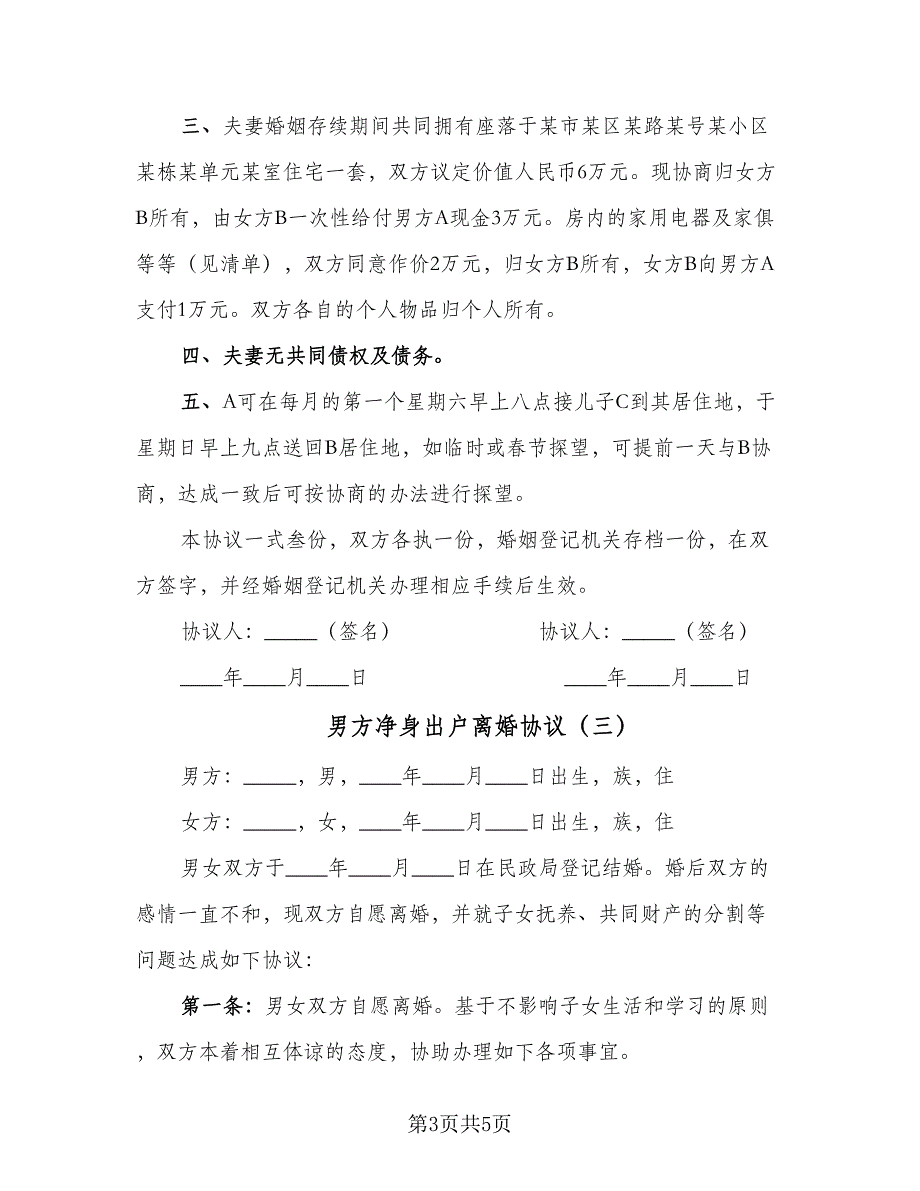 三、夫妻婚姻存续期间共同拥有座落于某市某区某路某号某小区
某栋某单元某室住宅一套，双方议定价值人民币6万元。现协商归女方
B所有，由女方B一次性给付男方A现金3万元。房内的家用电器及家俱
等等（见清单），双方同意作价2万元，归女方B所有，女方B向男方A
支付1万元。双方各自的个人物品归个人所有。
四、夫妻无共同债权及债务。
五、A可在每月的第一个星期六早上八点接儿子C到其居住地，于
星期日早上九点送回B居住地，如临时或春节探望，可提前一天与B协
商，达成一致后可按协商的办法进行探望。
本协议一式叁份，双方各执一份，婚姻登记机关存档一份，在双
方签字，并经婚姻登记机关办理相应手续后生效。
协议人：_____（签名） 协议人：_____（签名）
____年____月____日 ____年____月____日
男方净身出户离婚协议（三）
男方：_____，男，____年____月____日出生，族，住
女方：_____，女，____年____月____日出生，族，住
男女双方于____年____月____日在民政局登记结婚。婚后双方的
感情一直不和，现双方自愿离婚，并就子女抚养、共同财产的分割等
问题达成如下协议：
第一条：男女双方自愿离婚。基于不影响子女生活和学习的原则
，双方本着相互体谅的态度，协助办理如下各项事宜。
第3页共5页